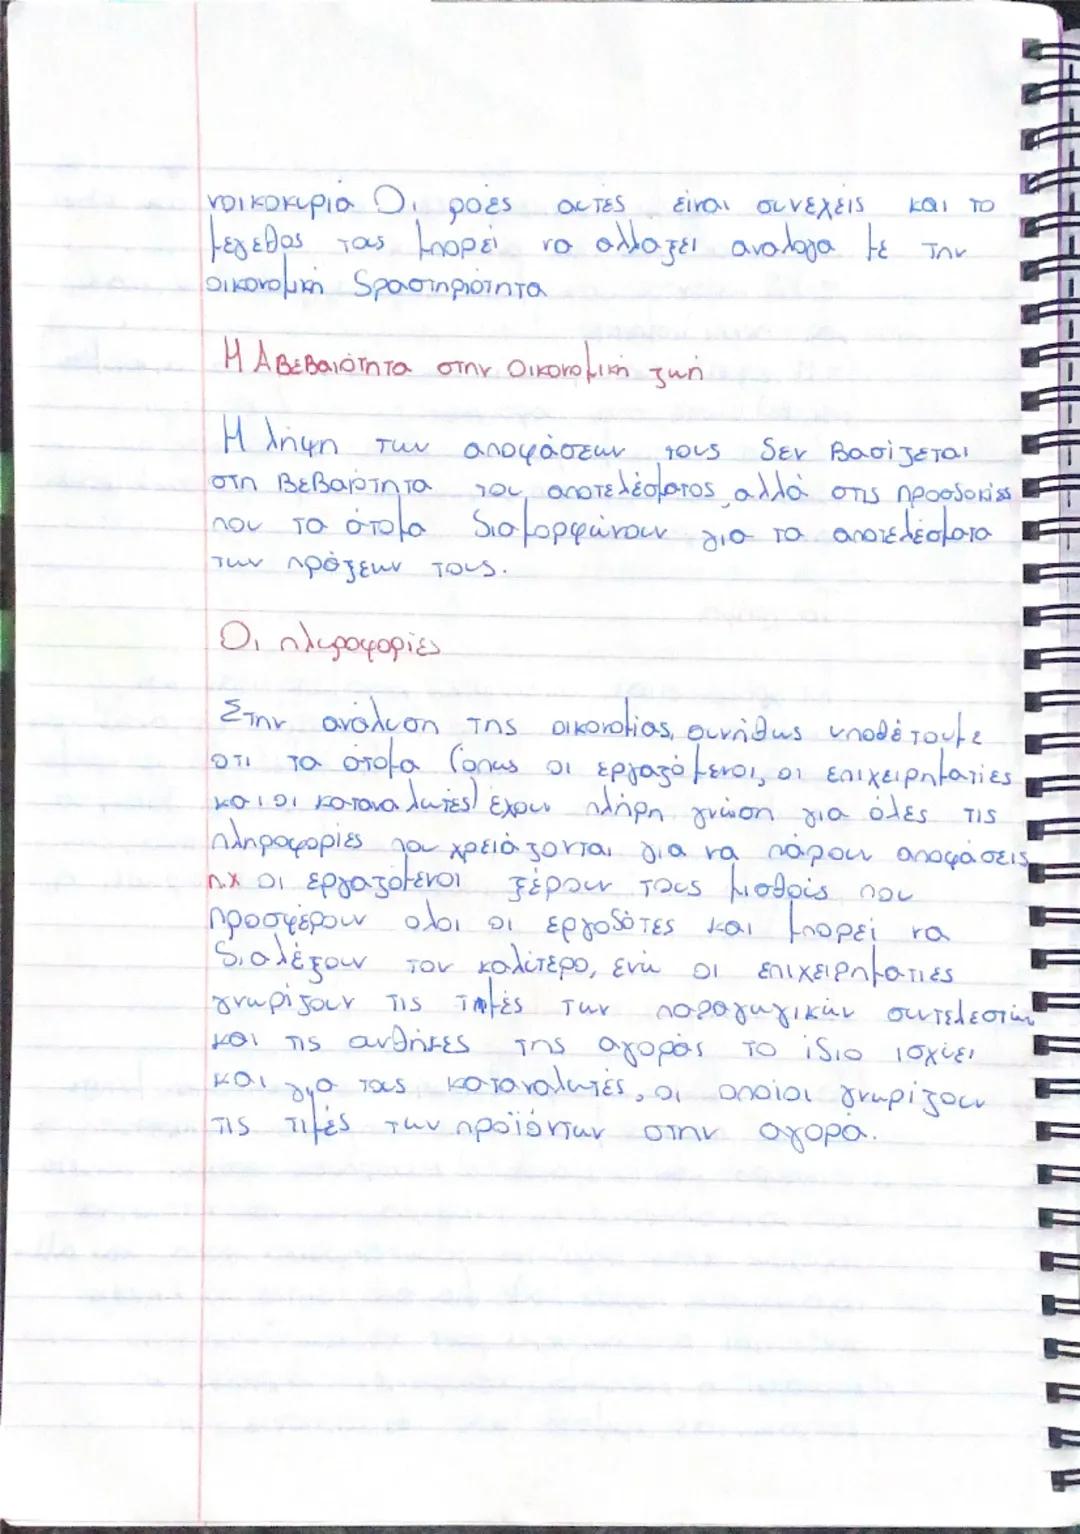 νοικοκυριά Οι ροές αυτές είναι συνεχείς και το
μέγεθος τους μπορεί να αλλάξει ανάλογα με την
οικονομική δραστηριότητα
Η Αβεβαιότητα στην Οικονομική ζωή
Η λήψη των αποφάσεων τους δεν βασίζεται
στη βεβαιότητα του αποτελέσματος, αλλά στις προσδοκίες
που τα άτομα διαμορφώνουν για τα αποτελέσματα
των πράξεων τους.
Οι πληροφορίες
Στην ανάλυση της οικονομίας, συνήθως υποθέτουμε
οτι τα άτομα (όπως οι εργαζόμενοι, οι επιχειρηματίες
και οι καταναλωτές) έχουν πλήρη γνώση για όλες τις
πληροφορίες που χρειάζονται για να πάρουν αποφάσεις
π.χ οι εργαζόμενοι ξέρουν τους μισθούς που
προσφέρουν όλοι οι εργοδότες και μπορεί να
διαλέξουν τον καλύτερο, ενώ οι επιχειρηματίες
γνωρίζουν τις τιμές των παραγωγικών συντελεστών
και τις συνθήκες της αγοράς το ίδιο ισχύει
και για τους καταναλωτές, οι οποίοι γνωρίζουν
τις τιμές των προϊόντων στην αγορά.